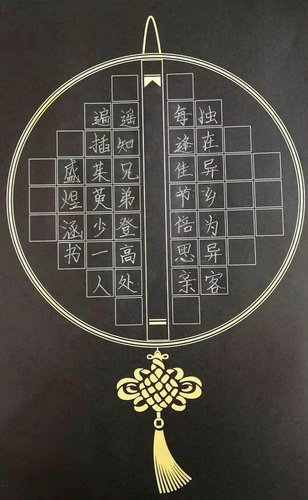 独在异乡为异客
每逢佳节倍思亲
遥知兄弟登高处
遍插茱萸少一人
盛煜涵书